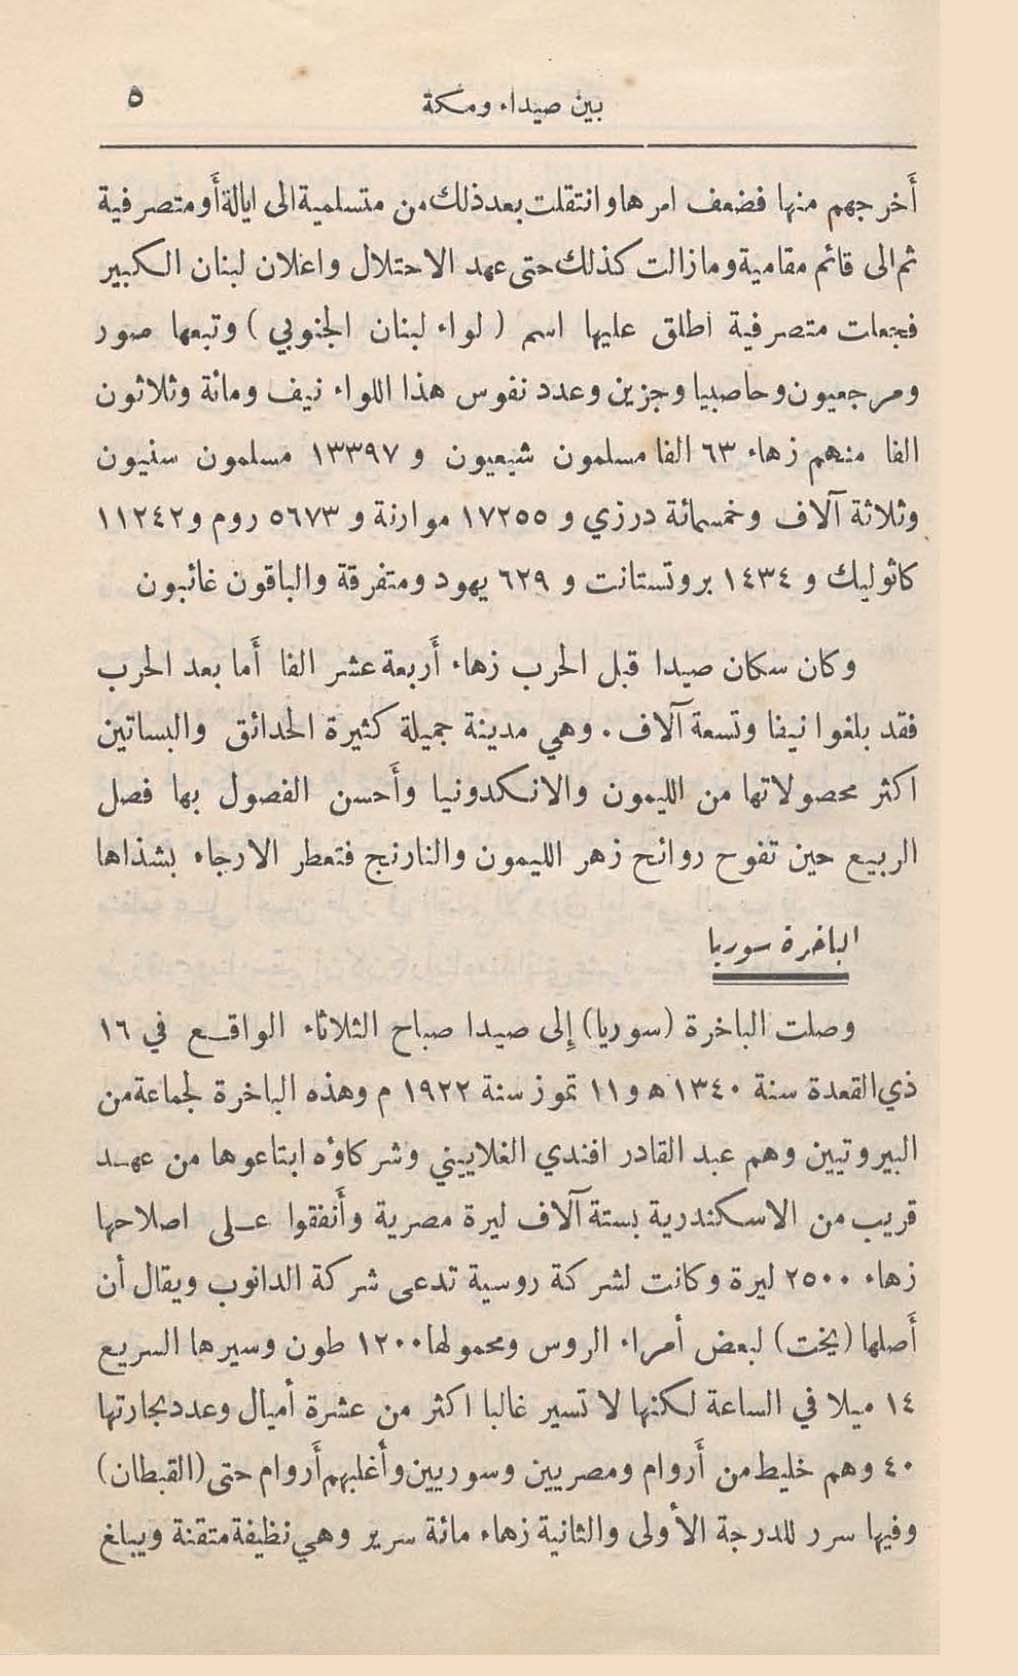 بين صيداء ومكة ٥
أَخرجهم منها فضعف امرها وانتقلت بعد ذلك من متسلمية الى ايالة أَو متصرفية
ثم الى قائم مقامية وما زالت كذلك حتى عهد الاحتلال واعلان لبنان الكبير
فجعلت متصرفية اطلق عليها اسم ( لواء لبنان الجنوبي ) وتبعها صور
ومرجعيون وحاصبيا وجزين وعدد نفوس هذا اللواء نيف ومائة وثلاثون
الفا منهم زهاء ٦٣ الفا مسلمون شيعيون و ١٣٣٩٧ مسلمون سنيون
وثلاثة آلاف وخمسمائة درزي و ١٧٢٥٥ موارنة و ٥٦٧٣ روم و ١١٢٤٢
كاثوليك و ١٤٣٤ بروتستانت و ٦٢٩ يهود ومتفرقة والباقون غائبون
وكان سكان صيدا قبل الحرب زهاء أَربعة عشر الفا أَما بعد الحرب
فقد بلغوا نيفا وتسعة آلاف . وهي مدينة جميلة كثيرة الحدائق والبساتين
اكثر محصولاتها من الليمون والانكدونيا وأَحسن الفصول بها فصل
الربيع حين تفوح روائح زهر الليمون والنارنج فتعطر الارجاء بشذاها
الباخرة سوريا
وصلت الباخرة (سوريا) إِلى صيدا صباح الثلاثاء الواقع في ١٦
ذي القعدة سنة ١٣٤٠ ه و ١١ تموز سنة ١٩٢٢ م وهذه الباخرة لجماعة من
البيروتيين وهم عبد القادر افندي الغلاييني وشركاؤه ابتاعوها من عهد
قريب من الاسكندرية بستة آلاف ليرة مصرية وأَنفقوا على اصلاحها
زهاء ٢٥٠٠ ليرة وكانت لشركة روسية تدعى شركة الدانوب ويقال أن
أَصلها (يخت) لبعض أمراء الروس ومحمولها ١٢٠٠ طون وسيرها السريع
١٤ ميلا في الساعة لكنها لا تسير غالبا اكثر من عشرة أميال وعدد بحارتها
٤٠ وهم خليط من أَروام ومصريين وسوريين وأَغلبهم أَروام حتى (القبطان)
وفيها سرر للدرجة الأولى والثانية زهاء مائة سرير وهي نظيفة متقنة ويبلغ